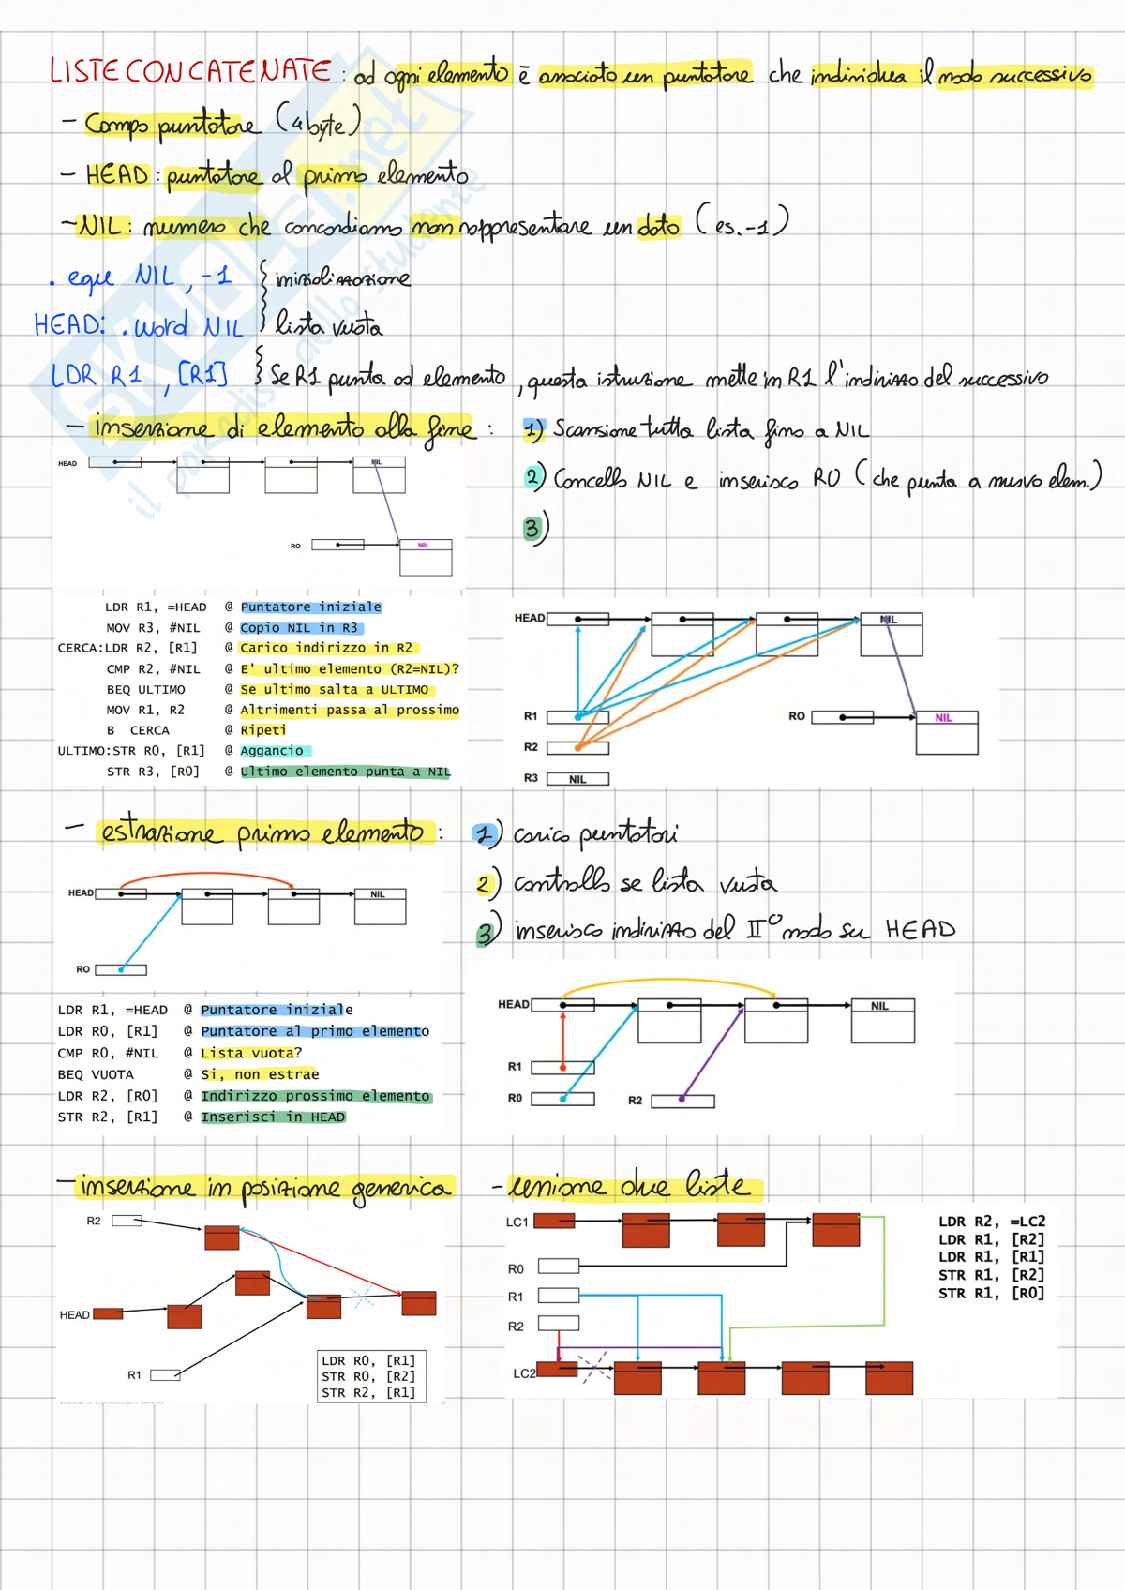 LISTE CONCATENATE : ad ogni elemento è associato un puntatore che individua il nodo successivo
- Campo puntatore (4 byte)
- HEAD : puntatore al primo elemento
- NIL : numero che concordiamo non rappresentare un dato (es. -1)
. equ NIL , -1 } inizializzazione
HEAD: .word NIL } lista vuota
LDR R1 , [R1] } Se R1 punta ad elemento , questa istruzione mette in R1 l'indirizzo del successivo
- inserzione di elemento alla fine :
1) Scansione tutta lista fino a NIL
2) Cancello NIL e inserisco R0 (che punta a nuovo elem.)
3)
HEAD NIL
R0 NIL
LDR R1, =HEAD @ Puntatore iniziale
MOV R3, #NIL @ Copio NIL in R3
CERCA:LDR R2, [R1] @ Carico indirizzo in R2
CMP R2, #NIL @ E' ultimo elemento (R2=NIL)?
BEQ ULTIMO @ Se ultimo salta a ULTIMO
MOV R1, R2 @ Altrimenti passa al prossimo
B CERCA @ Ripeti
ULTIMO:STR R0, [R1] @ Aggancio
STR R3, [R0] @ Ultimo elemento punta a NIL
HEAD NIL
R1 R0 NIL
R2
R3 NIL
- estrazione primo elemento :
1) carico puntatori
2) controllo se lista vuota
3) inserisco indirizzo del II° nodo su HEAD
HEAD NIL
R0
LDR R1, =HEAD @ Puntatore iniziale
LDR R0, [R1] @ Puntatore al primo elemento
CMP R0, #NIL @ Lista vuota?
BEQ VUOTA @ Si, non estrae
LDR R2, [R0] @ Indirizzo prossimo elemento
STR R2, [R1] @ Inserisci in HEAD
HEAD NIL
R1
R0 R2
- inserzione in posizione generica
R2
HEAD
R1
LDR R0, [R1]
STR R0, [R2]
STR R2, [R1]
- unione due liste
LC1
R0
R1
R2
LC2
LDR R2, =LC2
LDR R1, [R2]
LDR R1, [R1]
STR R1, [R2]
STR R1, [R0]